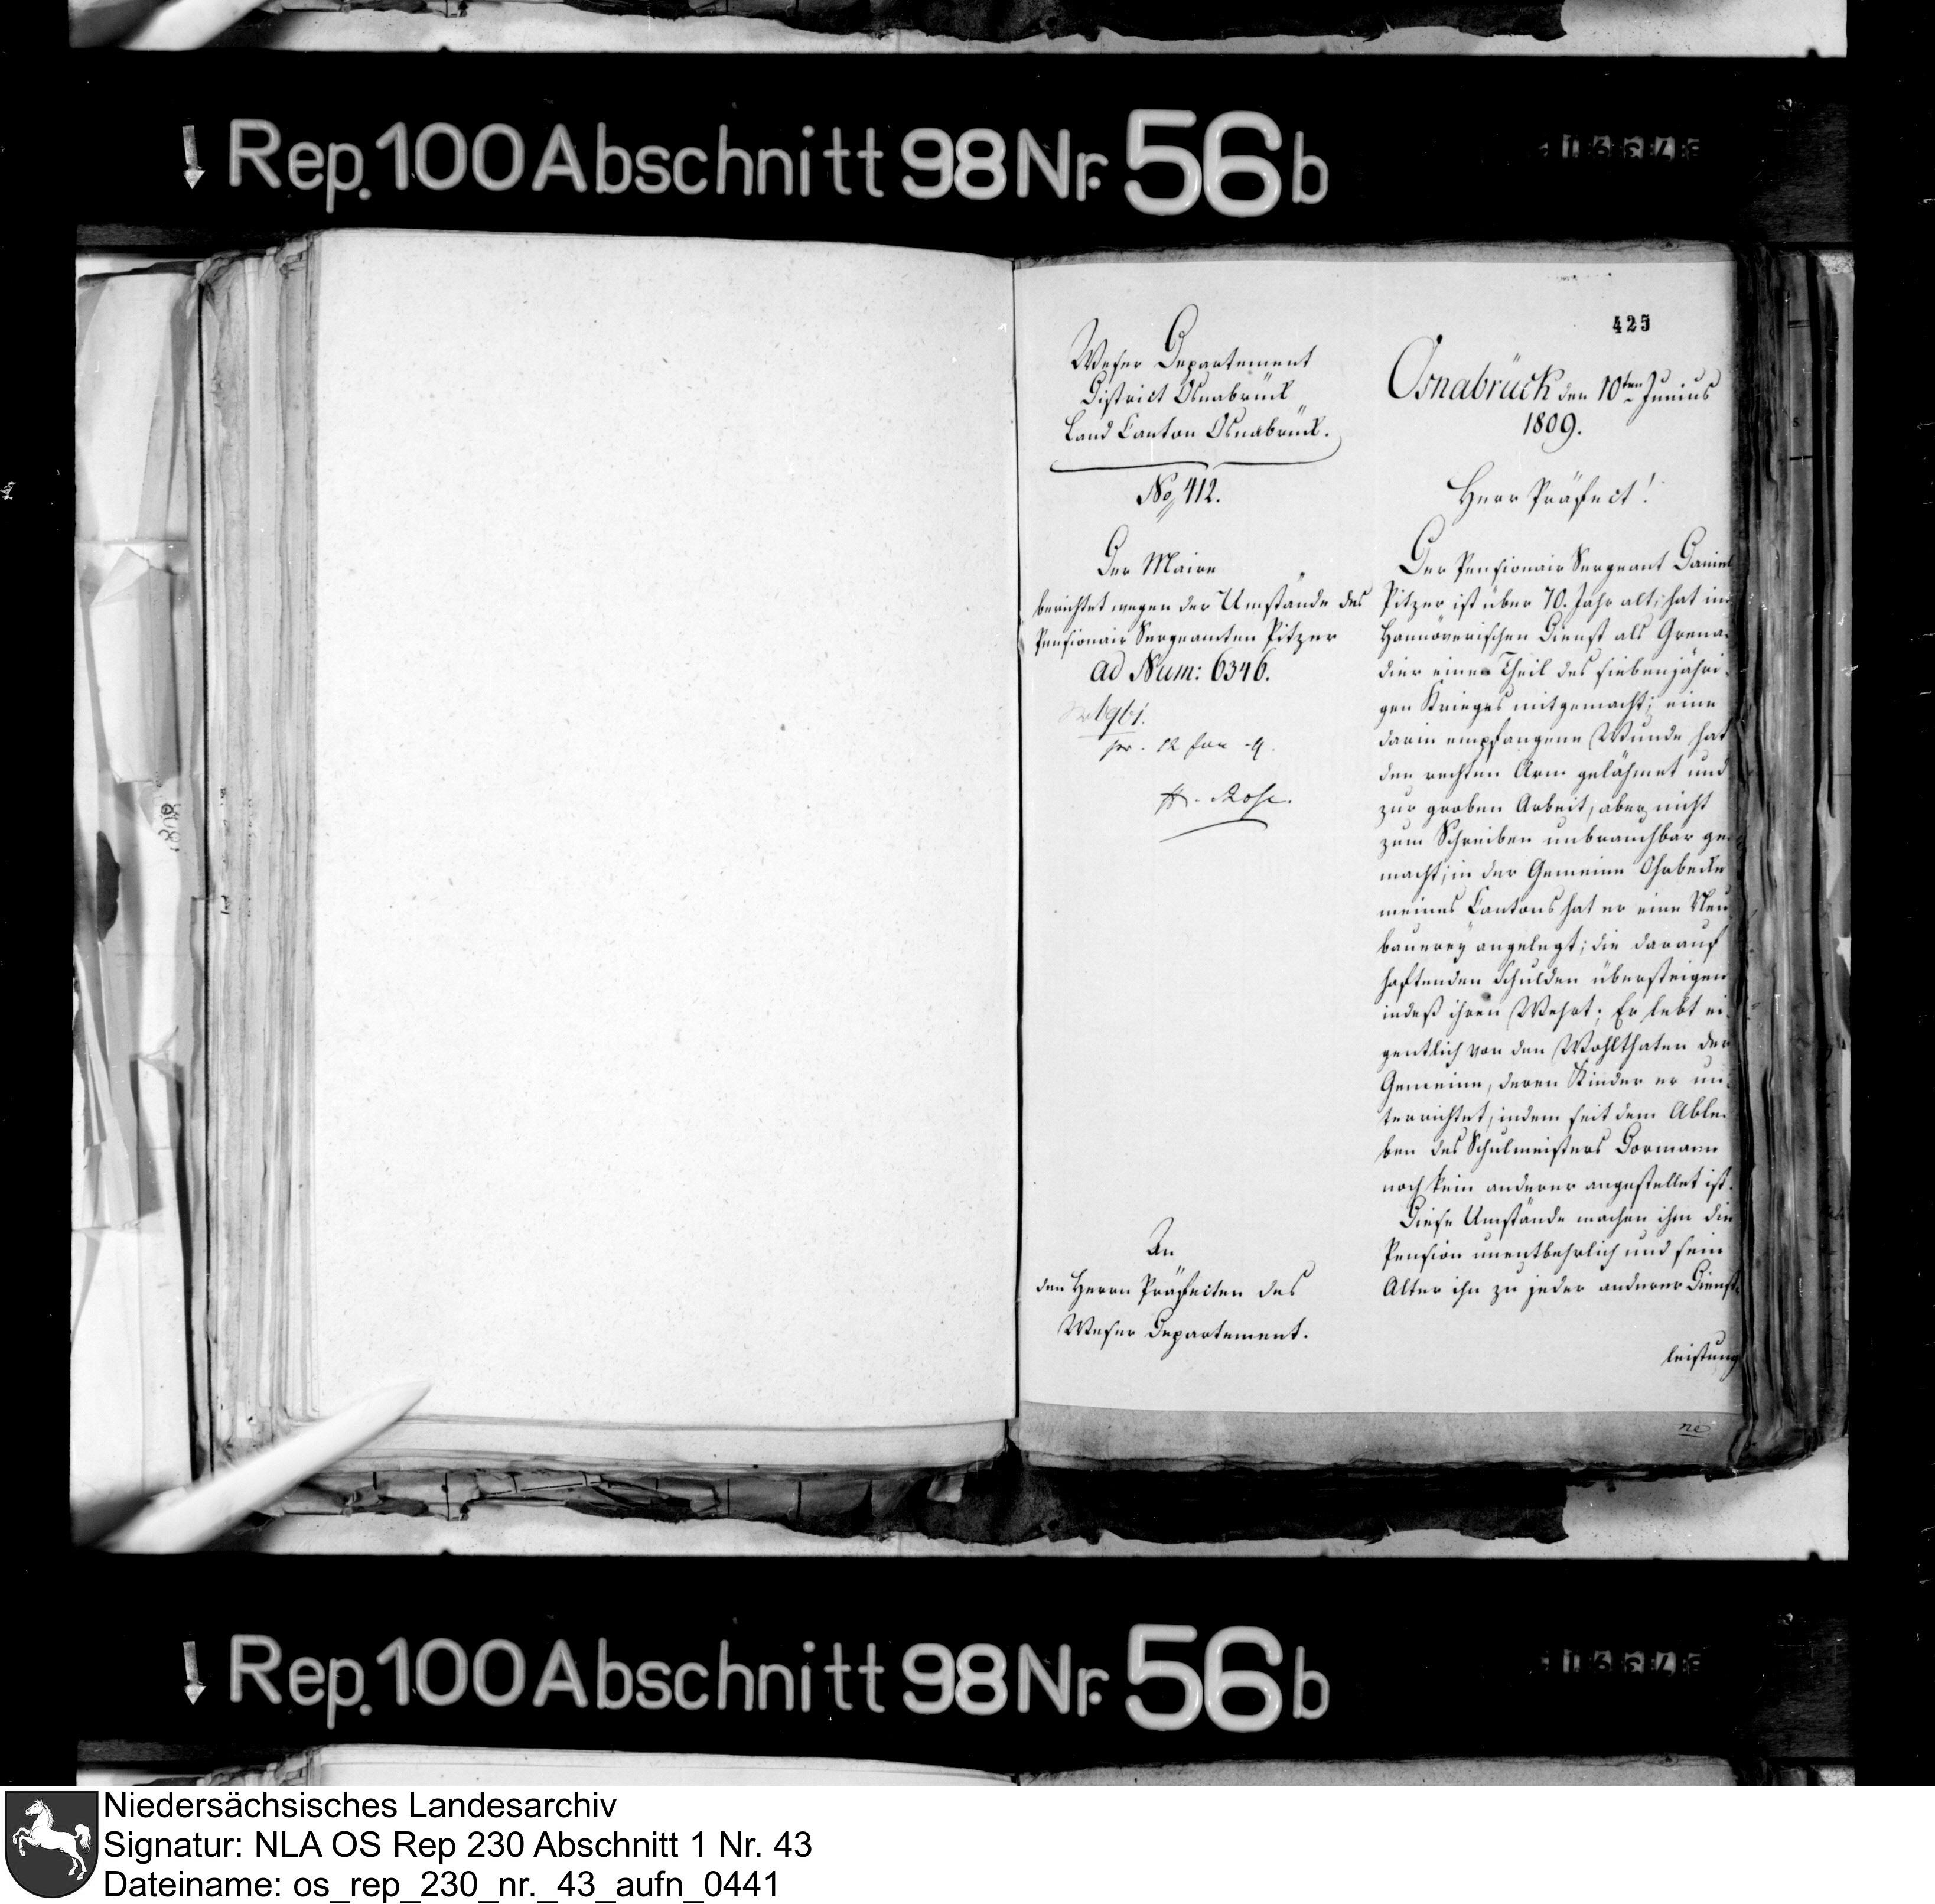 Rep. 100 Abschnitt 98 Nr. 56 b
425
Weser Departement
District Osnabrück
Land Canton Osnabrück.
No 412.
Der Maire
berichtet wegen der Umstände des
Pensionair Sergeanten Pitzer
ad Num: 6346.
pr. 12 Jun -9.
H. Rose.
An
den Herrn Präfecten des
Weser Departement.
Osnabrück den 10ten Junius
1809.
Herr Präfect!
Der Pensionair Sergeant Daniel
Pitzer ist über 70. Jahr alt; hat im
Hannöverischen Dienst als Grena-
dier einen Theil des siebenjähri-
gen Krieges mitgemacht; eine
darin empfangene Wunde hat
den rechten Arm gelähmet und
zur groben Arbeit, aber nicht
zum Schreiben unbrauchbar ge-
macht; in der Gemeine Ohrbecke
meines Cantons hat er eine Neu
bauerey angelegt; die darauf
haftenden Schulden übersteigen
indeß ihren Wehrt; Er lebt ei-
gentlich von den Wohlthaten der
Gemeine, deren Kinder er un-
terrichtet, indem seit dem Able-
ben des Schulmeisters Dormann
noch kein anderer angestellet ist.
Diese Umstände machen ihm die
Pension unentbehrlich und sein
Alter ihn zu jeder anderer Dienst-
leistung
Rep. 100 Abschnitt 98 Nr. 56 b
Niedersächsisches Landesarchiv
Signatur: NLA OS Rep 230 Abschnitt 1 Nr. 43
Dateiname: os_rep_230_nr._43_aufn_0441